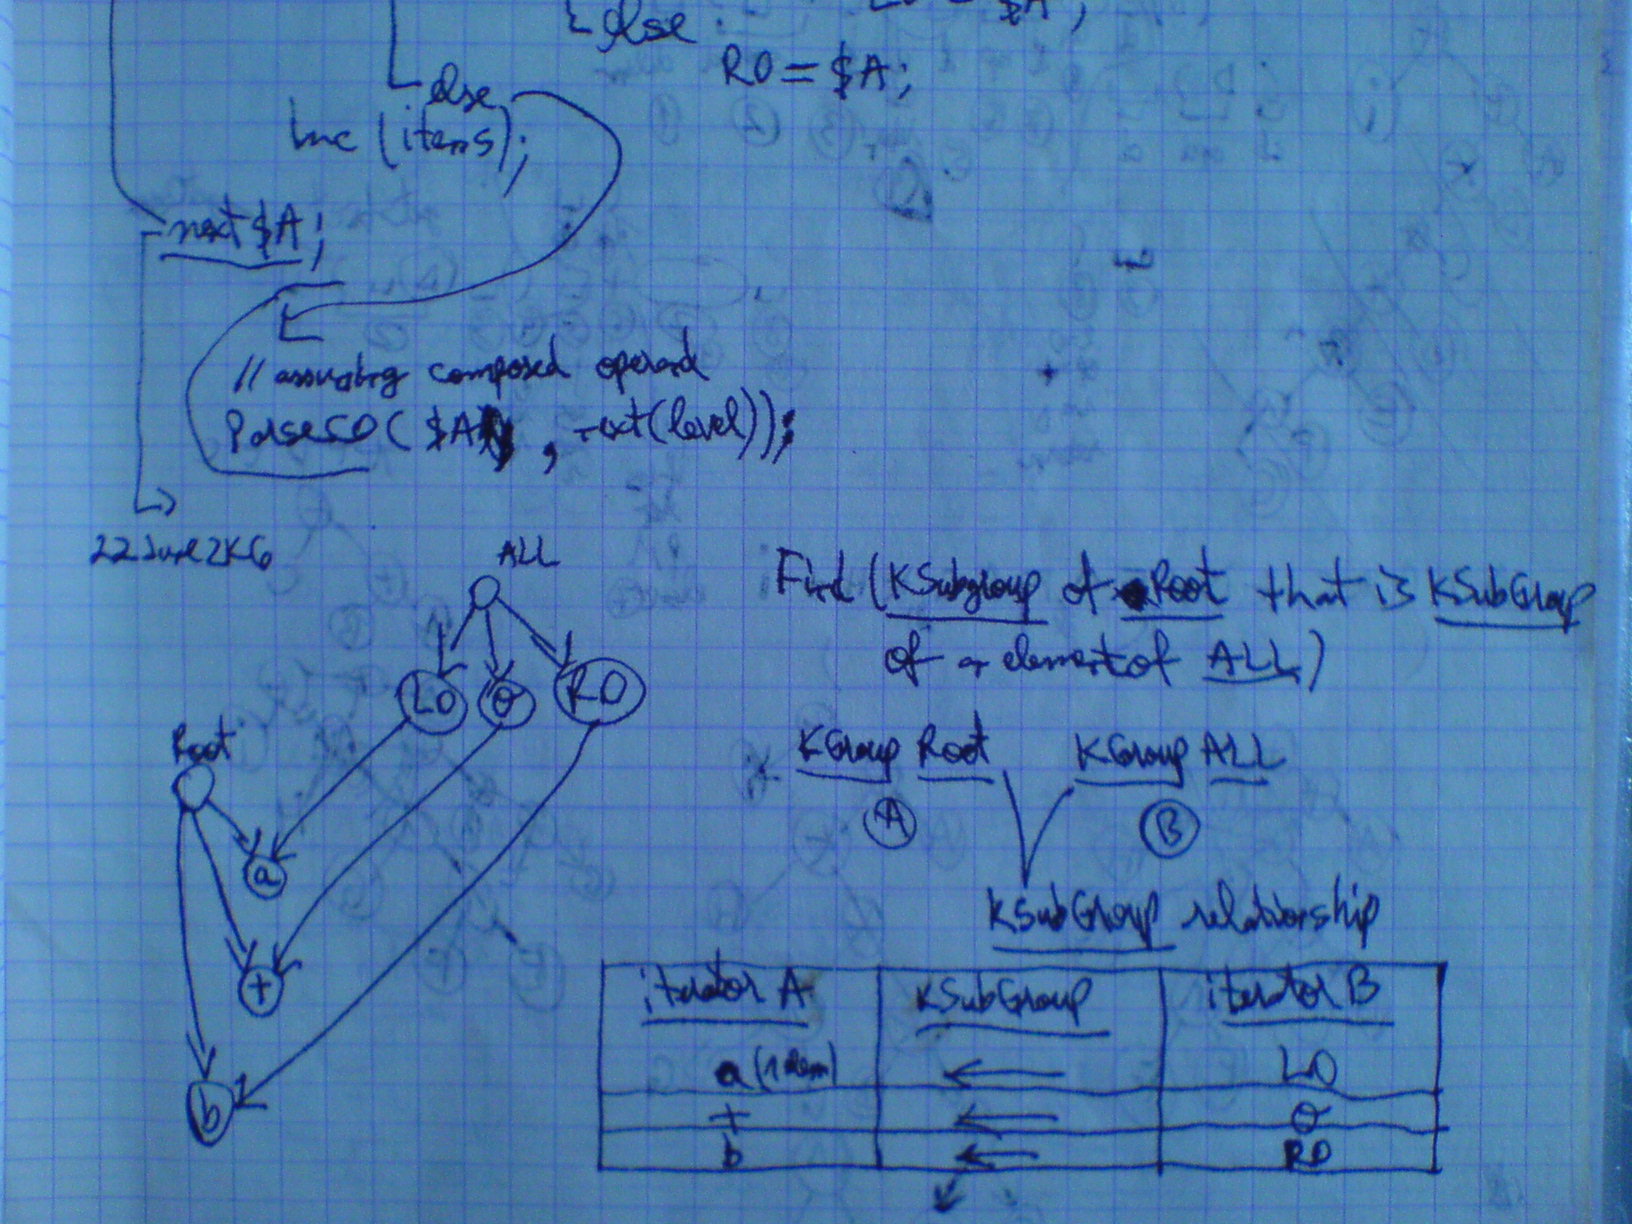 else
$A;
RO = $A;
else
inc (items);
next $A;
// assuming composed operand
ParseCO ( $A , next(level));
22 June 2K6
ALL
LO O RO
Root
a
+
b
Find (KSubgroup of Root that is KSubGroup
of a element of ALL)
KGroup Root KGroup ALL
A B
KSubGroup relationship
iterator A KSubGroup iterator B
a (1 elem) ← LO
+ ← O
b ← RO